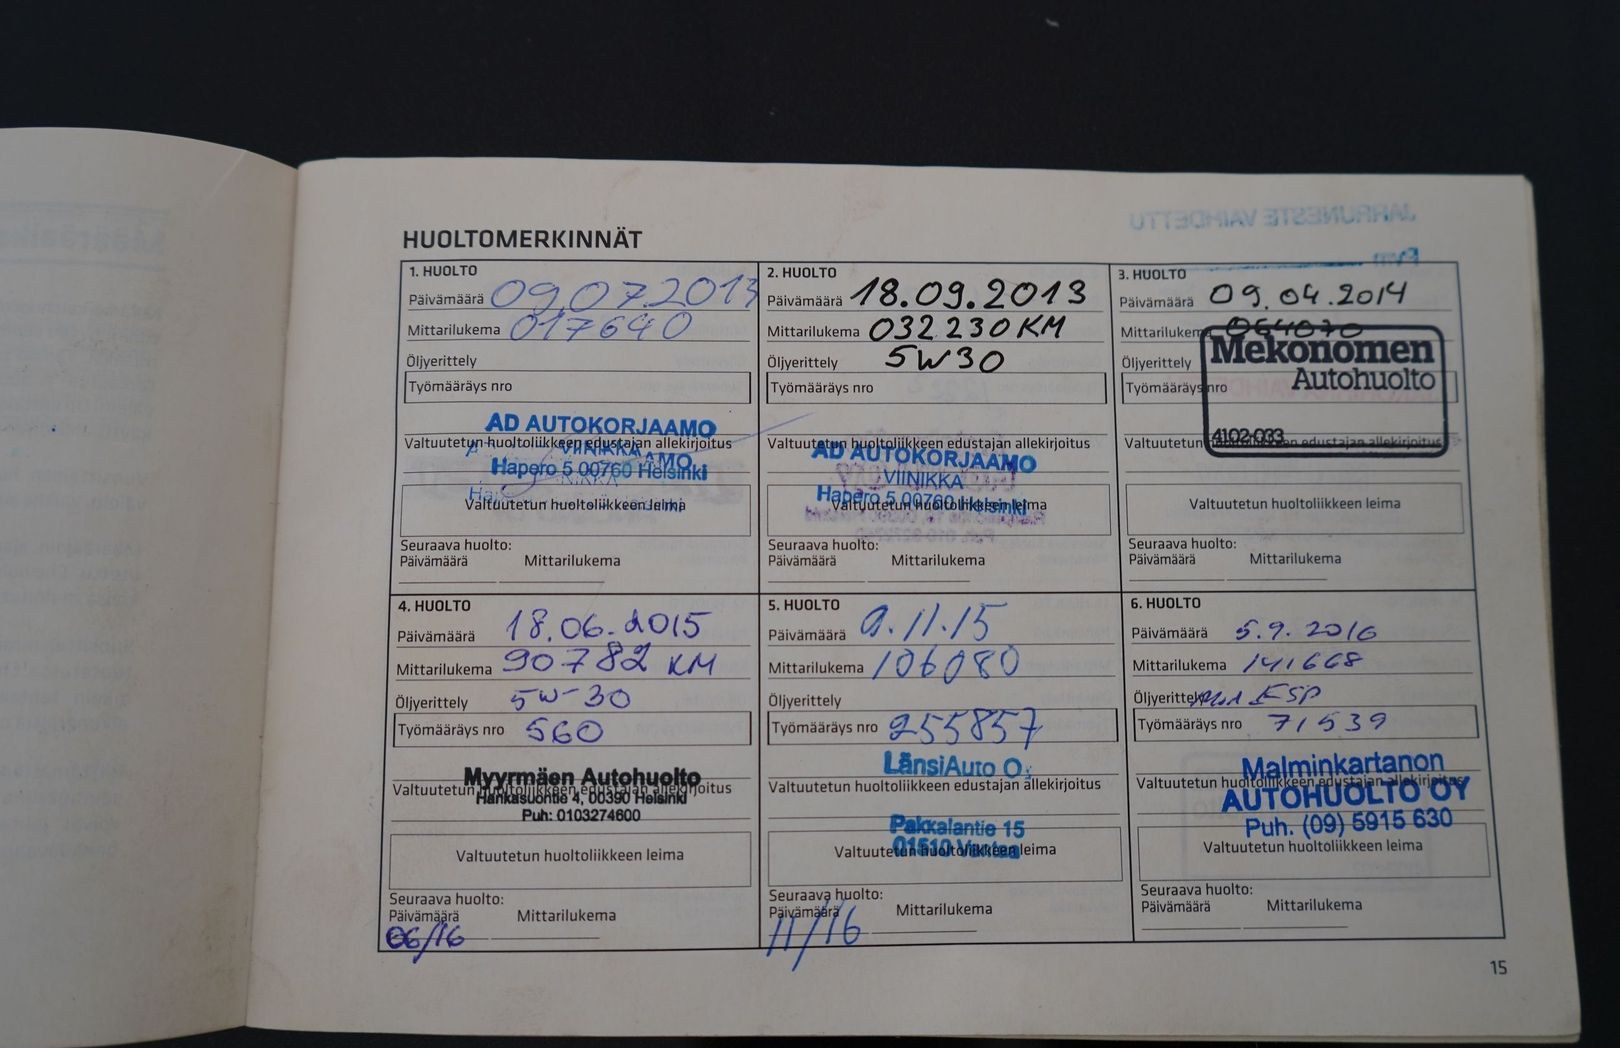 HUOLTOMERKINNÄT
1. HUOLTO
Päivämäärä 09.07.2013
Mittarilukema 017640
Öljyerittely
Työmääräys nro
AD AUTOKORJAAMO
Valtuutetun huoltoliikkeen edustajan allekirjoitus
VIINIKKA
Hapero 5 00760 Helsinki
Valtuutetun huoltoliikkeen leima
Seuraava huolto:
Päivämäärä Mittarilukema
2. HUOLTO
Päivämäärä 18.09.2013
Mittarilukema 032230 KM
Öljyerittely 5W30
Työmääräys nro
Valtuutetun huoltoliikkeen edustajan allekirjoitus
AD AUTOKORJAAMO
VIINIKKA
Hapero 5 00760 Helsinki
Valtuutetun huoltoliikkeen leima
Seuraava huolto:
Päivämäärä Mittarilukema
3. HUOLTO
Päivämäärä 09.04.2014
Mittarilukema 064070
Mekonomen
Öljyerittely
Autohuolto
Työmääräys nro
4102-033
Valtuutetun huoltoliikkeen edustajan allekirjoitus
Valtuutetun huoltoliikkeen leima
Seuraava huolto:
Päivämäärä Mittarilukema
4. HUOLTO
Päivämäärä 18.06.2015
Mittarilukema 90782 KM
Öljyerittely 5W-30
Työmääräys nro 560
Myyrmäen Autohuolto
Valtuutetun huoltoliikkeen edustajan allekirjoitus
Hankasuontie 4, 00390 Helsinki
Puh: 0103274600
Valtuutetun huoltoliikkeen leima
Seuraava huolto:
Päivämäärä Mittarilukema
06/16
5. HUOLTO
Päivämäärä 9.11.15
Mittarilukema 106080
Öljyerittely
Työmääräys nro 255857
LänsiAuto O
Valtuutetun huoltoliikkeen edustajan allekirjoitus
Pakkalantie 15
01510 Vantaa
Valtuutetun huoltoliikkeen leima
Seuraava huolto:
Päivämäärä Mittarilukema
11/16
6. HUOLTO
Päivämäärä 5.9.2016
Mittarilukema 141668
Öljyerittely ESP
Työmääräys nro 71539
Malminkartanon
Valtuutetun huoltoliikkeen edustajan allekirjoitus
AUTOHUOLTO OY
Puh. (09) 5915 630
Valtuutetun huoltoliikkeen leima
Seuraava huolto:
Päivämäärä Mittarilukema
15